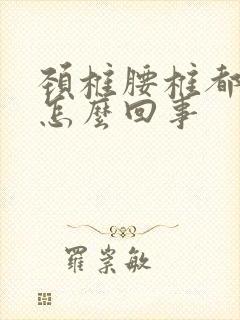 頸椎腰椎都
怎麼回事
羅崇敏